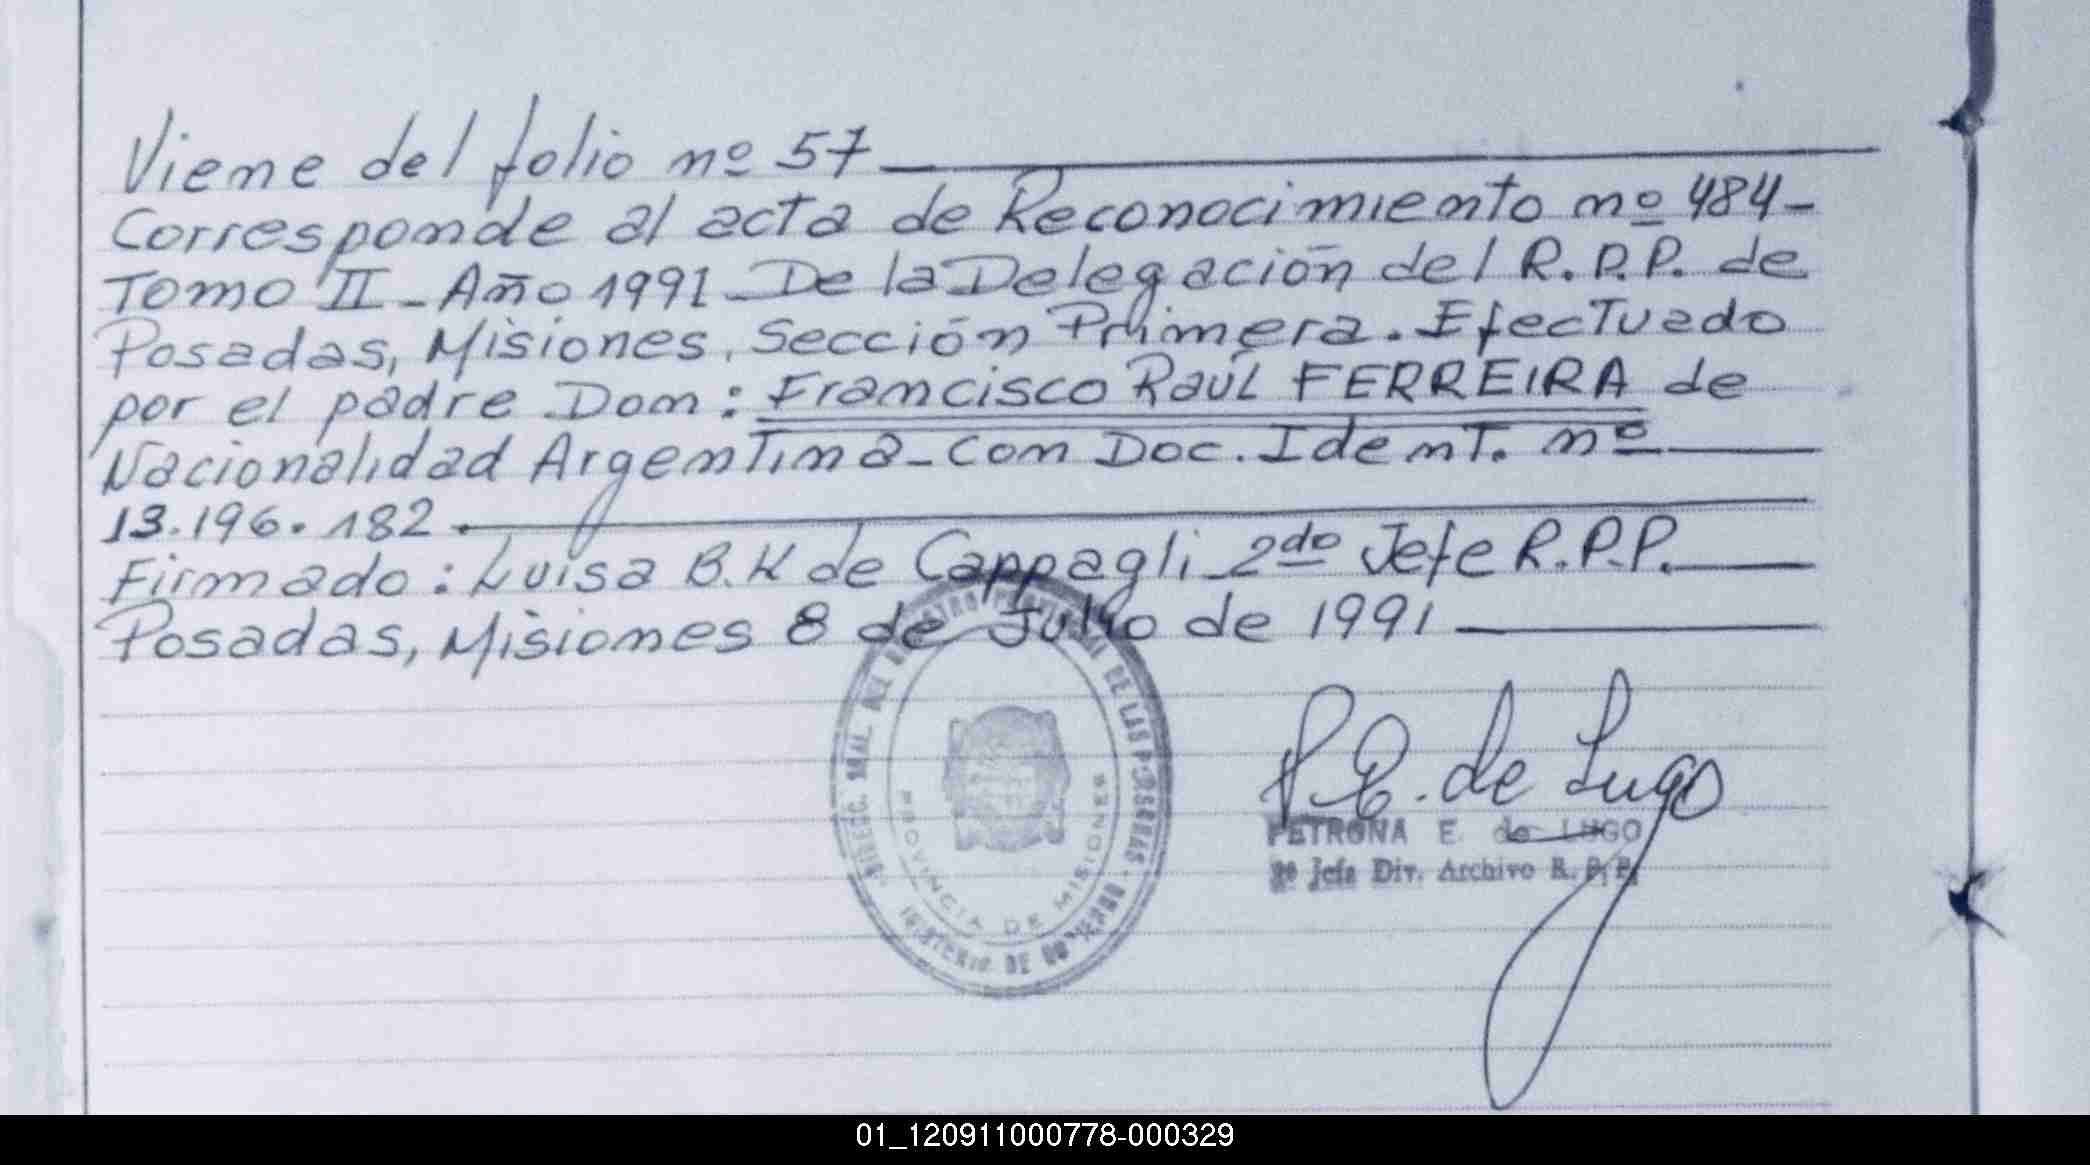 Viene del folio nº 57
Corresponde al acta de Reconocimiento nº 484-
Tomo II - Año 1991 - De la Delegación del R.P.P. de
Posadas, Misiones, Sección Primera. Efectuado
por el padre Don: Francisco Raúl FERREIRA de
Nacionalidad Argentina - con Doc. Ident. nº
13.196.182.
Firmado: Luisa B.K de Cappagli 2do Jefe R.P.P.
Posadas, Misiones 8 de Julio de 1991
PROVINCIA DE LAS PERSONAS
PROVINCIA DE MISIONES
P.E. de Lugo
PETRONA E. de LUGO
2º Jefa Div. Archivo R.P.P.
01_120911000778-000329